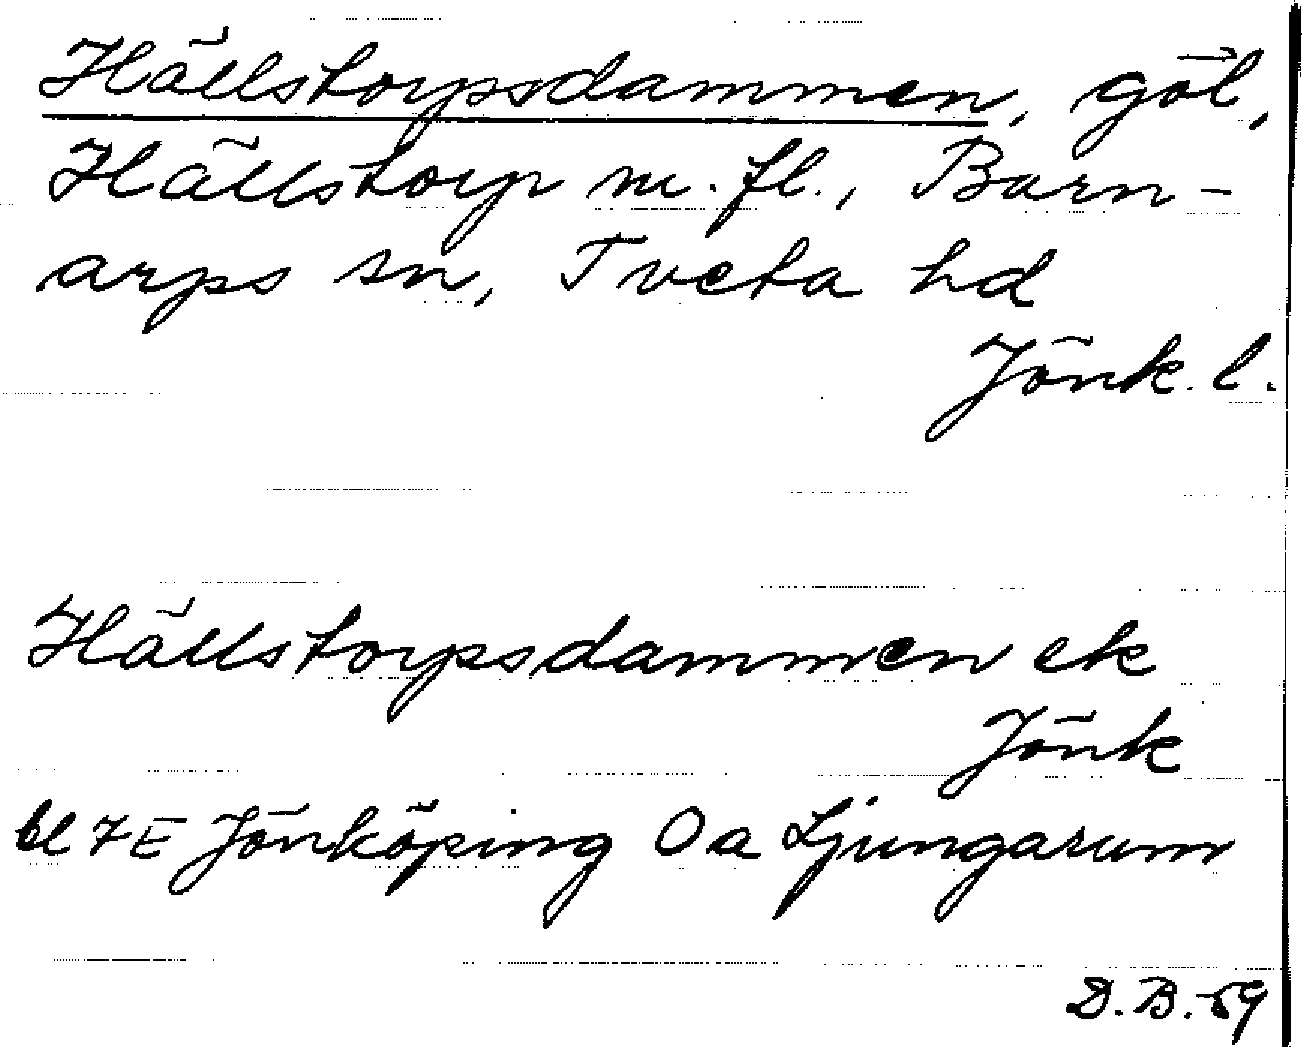 Hällstorpsdammen, göl,
Hällstorp m.fl., Barn-
arps sn, Tveta hd
Jönk. l.
Hällstorpsdammen ek
Jönk
bl 7E Jönköping Oa Ljungarum
D.B.-59